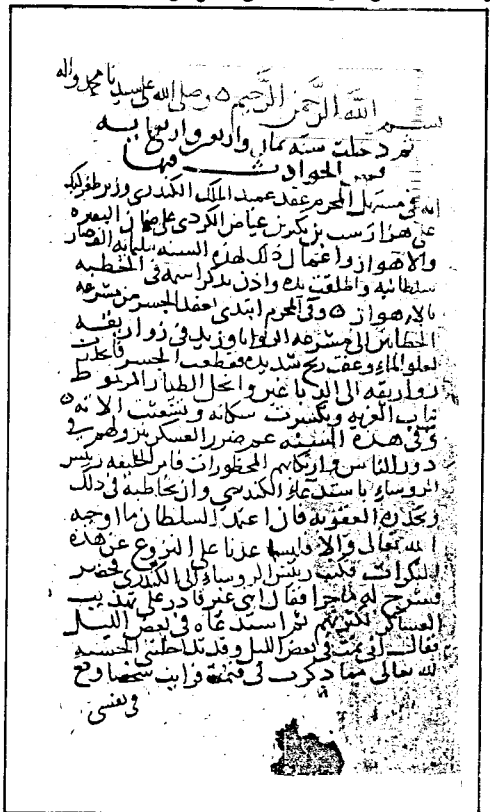 بسم الله الرحمن الرحيم ه وصلى الله على سيدنا محمد واله
ثم دخلت سنه ثمان واربعين واربعمايه
فمن الحوادث فيها
انه في مستهل المحرم عقد عميد الملك الكندري وزير طغرلبك
على هزارسب بن بنكير بن عياض الكردي على ضمان البصره
والاهواز واعمال ذلك لهذه السنه بثلثمايه الف دينار
سلطانيه واطلقت يده واذن بذكر اسمه في الخطبه
بالاهواز ه وفي المحرم ابتدى بعقد الجسر من مشرعه
الحطابين الى مشرعه الروايا وزيد في زواريقه
لعلو الماء وعقب ريح شديده فقطعت الجسر فانحدرت
زواريقه الى الدباغين وانحل الطيار المربوط
بباب الغربه وتكسرت سكانه وتشعثت الاته ه
وفي هذه السنه عم ضرر العسكر بنزولهم في
دور الناس وارتكابهم المحظورات فامر الخليفه رئيس
الروساء باستدعاء الكندري وان يخاطبه في ذلك
ويحذره العقوبه فان اعتمد السلطان ما اوجبه
الله تعالى والا فليساعدنا على النزوح عن هذه
المنكرات فكتب رئيس الروساء الى الكندري فحضر
فشرح له ما جرا فقال اني غير قادر على تهذيب
العساكر لكثرتهم ثم استدعاه في بعض الليل
فقال اني نمت في بعض الليل وقد تداخلتني الخشيه
لله تعالى مما ذكرت في فرايت شخصا وقع
في نفسي